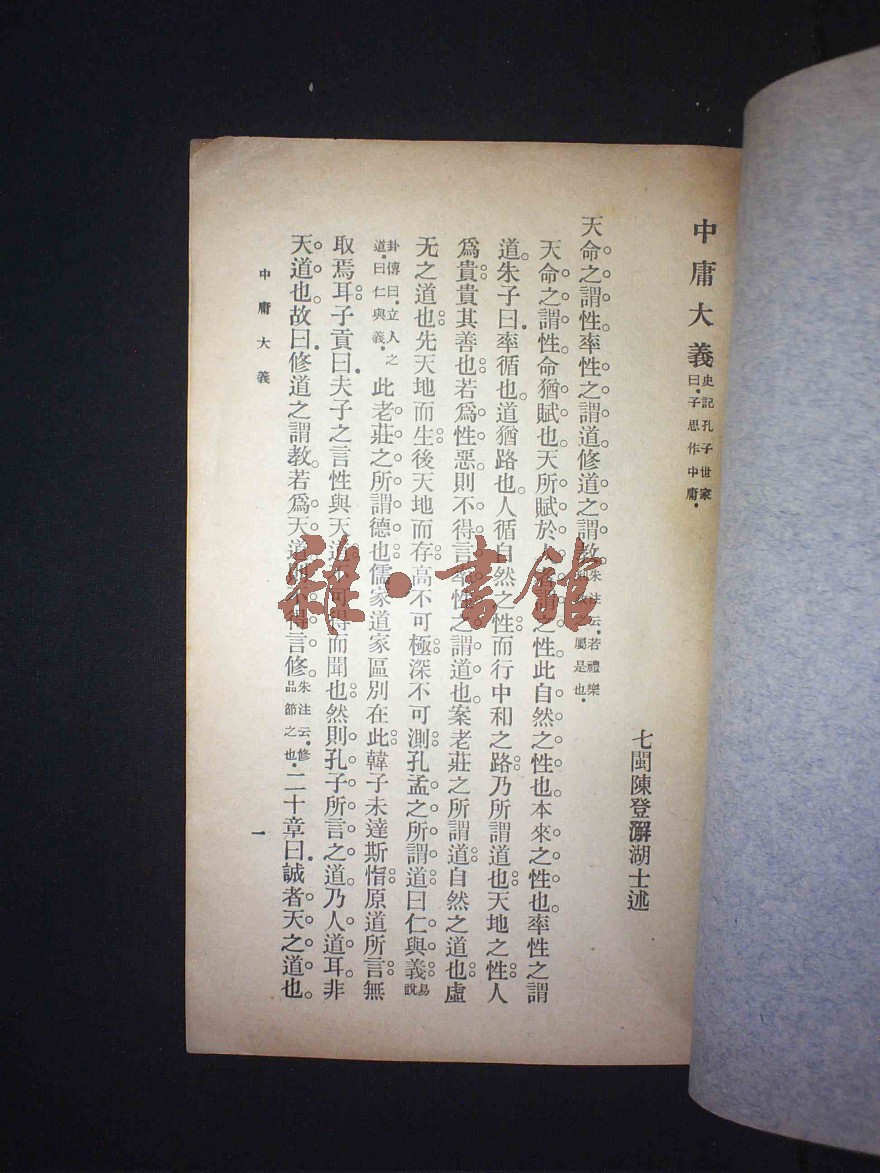 中庸大義史記孔子世家曰子思作中庸
七閩陳登澥湖士述
天命之謂性率性之謂道修道之謂教朱注云若禮樂屬是也
天命之謂性命猶賦也天所賦於之性此自然之性也本來之性也率性之謂
道朱子曰率循也道猶路也人循自然之性而行中和之路乃所謂道也天地之性人
爲貴貴其善也若爲性惡則不得言率性之謂道也案老莊之所謂道自然之道也虛
无之道也先天地而生後天地而存高不可極深不可測孔孟之所謂道曰仁與義易說
卦傳曰立人之道曰仁與義此老莊之所謂德也儒家道家區別在此韓子未達斯恉原道所言無
取焉耳子貢曰夫子之言性與天道不可得而聞也然則孔子所言之道乃人道耳非
天道也故曰修道之謂教若爲天道則不得言修朱注云修品節之也二十章曰誠者天之道也
中庸大義
一
雜·書館